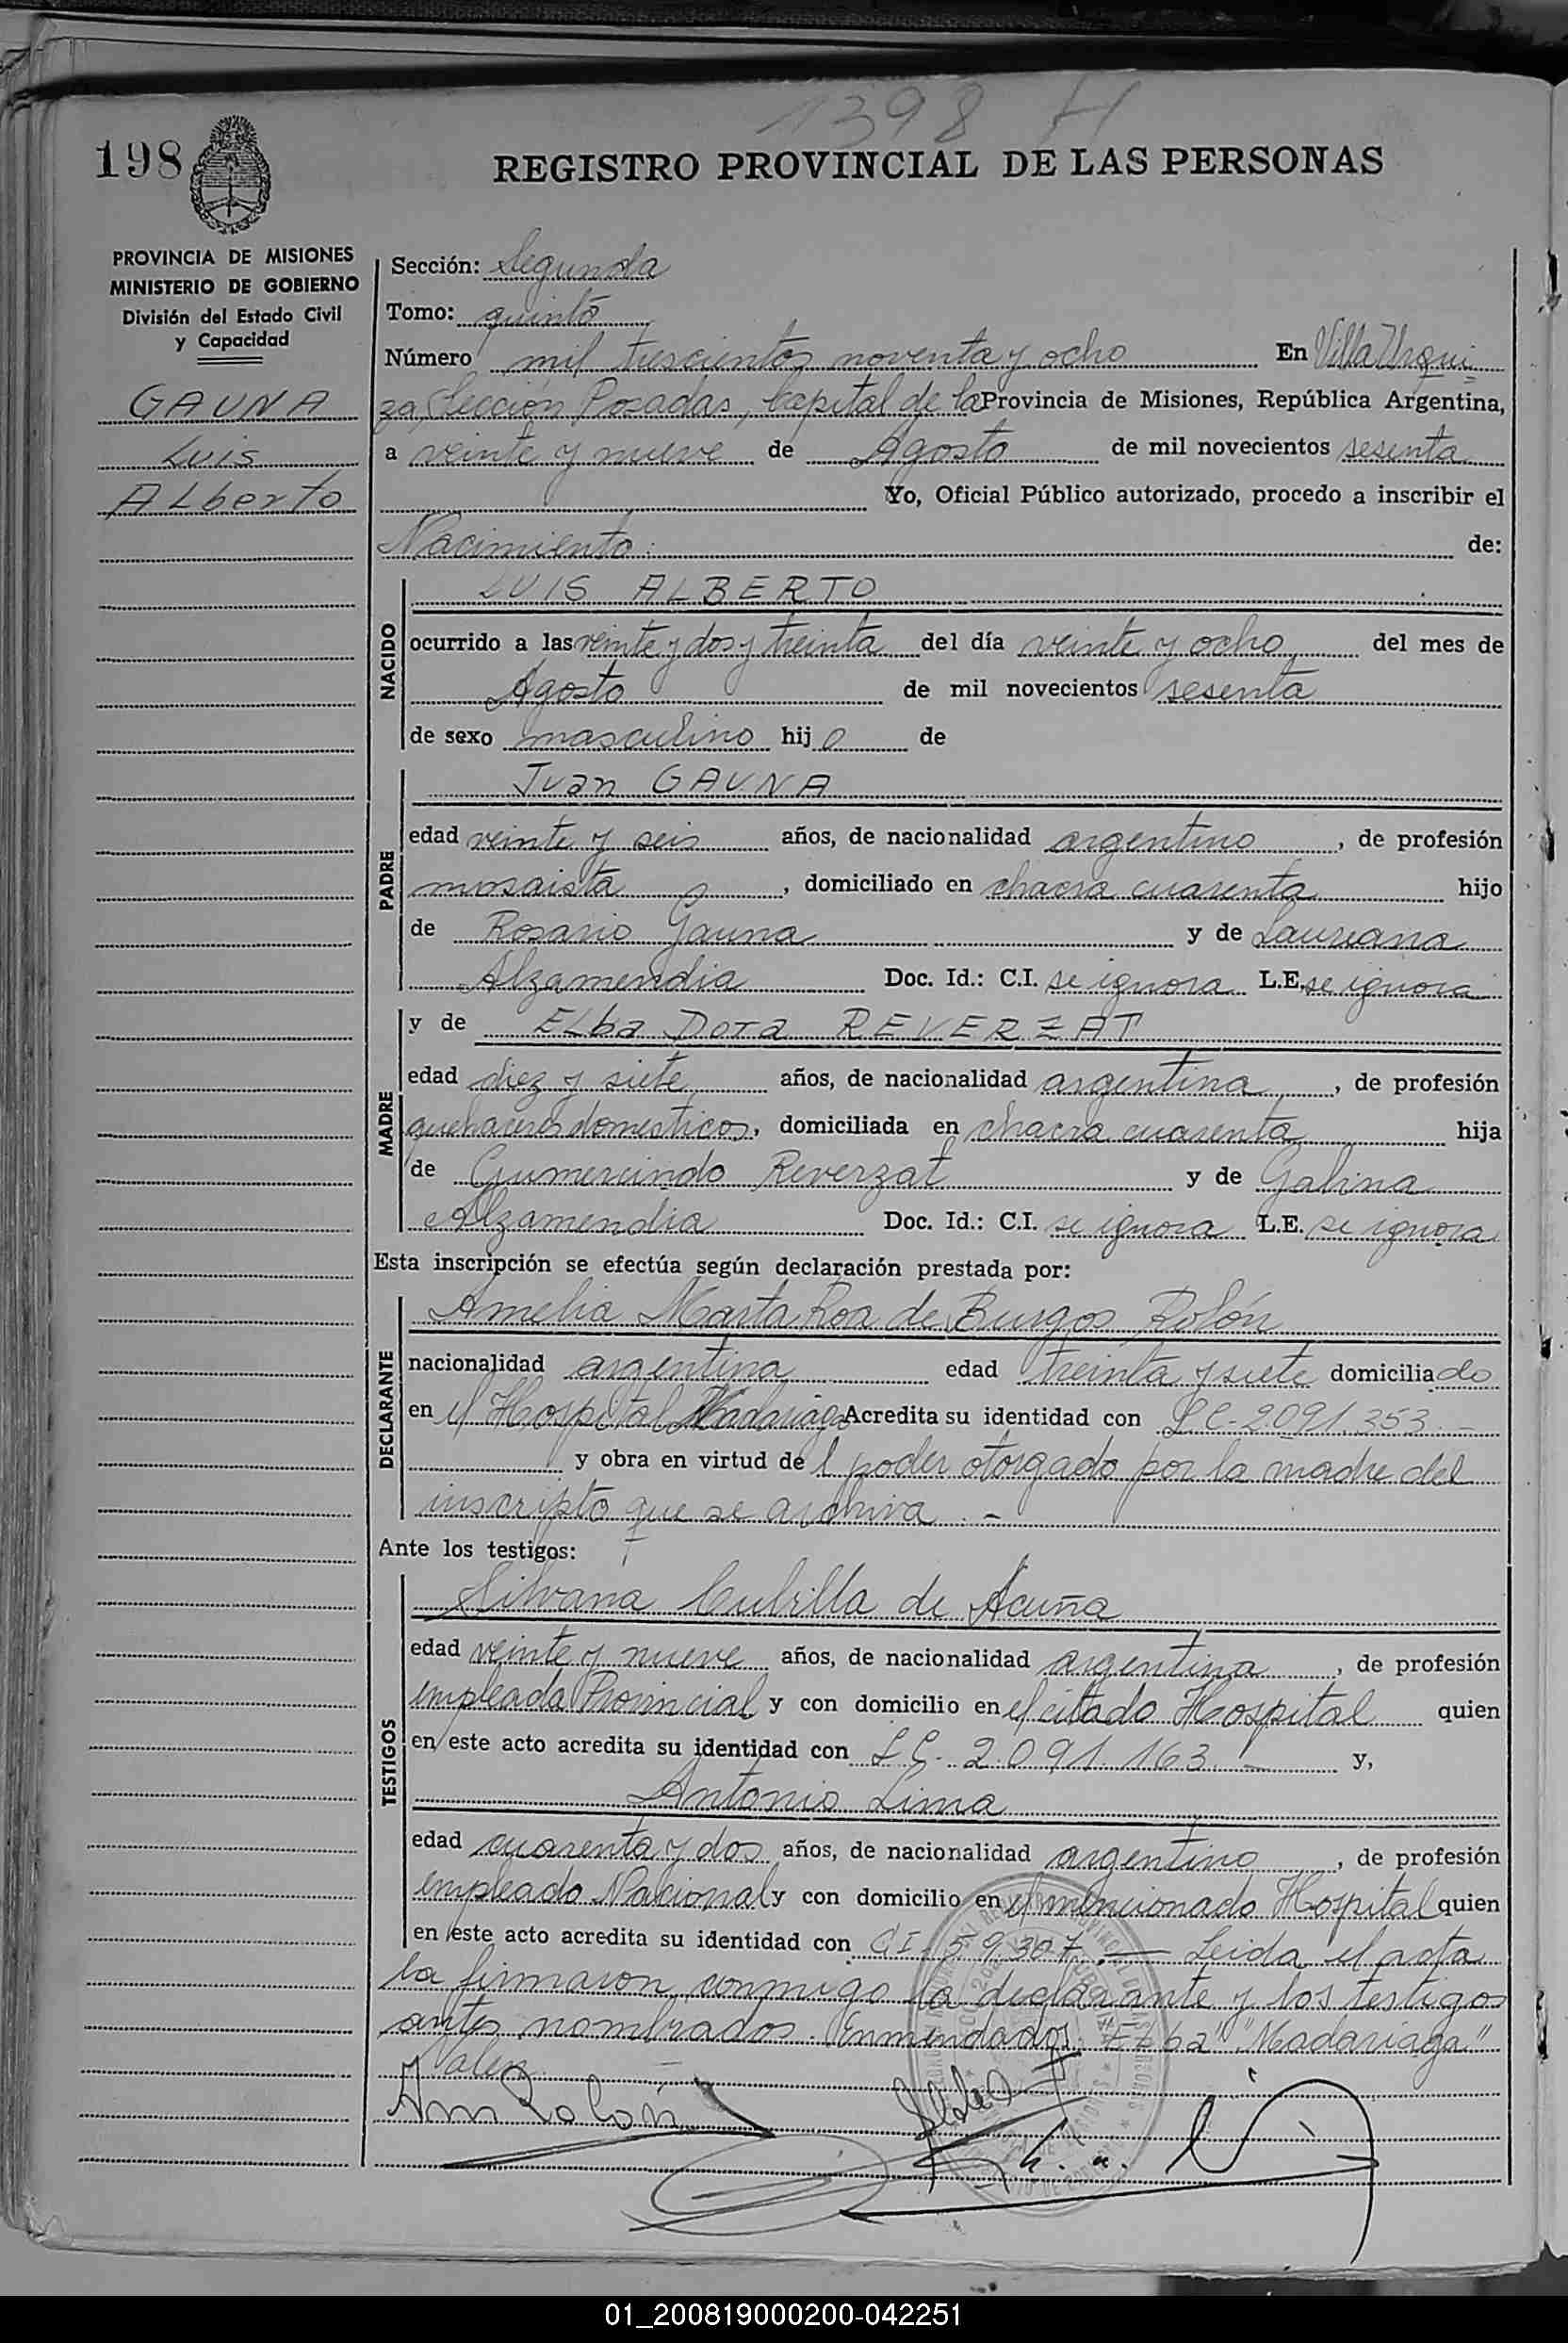 1398 H
198
REGISTRO PROVINCIAL DE LAS PERSONAS
PROVINCIA DE MISIONES
MINISTERIO DE GOBIERNO
División del Estado Civil
y Capacidad
GAUNA
Luis
ALberto
Sección: Segunda
Tomo: quinto
Número mil trescientos noventa y ocho En Villa Urqui
za, Sección Posadas, Capital de la Provincia de Misiones, República Argentina,
a veinte y nueve de Agosto de mil novecientos sesenta
Yo, Oficial Público autorizado, procedo a inscribir el
Nacimiento: de:
NACIDO
LUIS ALBERTO
ocurrido a las veinte y dos y treinta del día veinte y ocho del mes de
Agosto de mil novecientos sesenta
de sexo masculino hijo de
PADRE
Juan GAUNA
edad veinte y seis años, de nacionalidad argentino, de profesión
mosaista, domiciliado en chacra cuarenta hijo
de Rosario Gauna y de Laureana
Alzamendia Doc. Id.: C.I. se ignora L.E. se ignora
MADRE
y de ELba Dora REVERZAT
edad diez y siete años, de nacionalidad argentina, de profesión
quehaceres domesticos, domiciliada en chacra cuarenta hija
de Gumercindo Reverzat y de Galina
Alzamendia Doc. Id.: C.I. se ignora L.E. se ignora
Esta inscripción se efectúa según declaración prestada por:
DECLARANTE
Amelia Marta Roa de Burgos Rolón
nacionalidad argentina edad treinta y siete domiciliado
en el Hospital Madariaga Acredita su identidad con LC-2091.353.-
y obra en virtud del poder otorgado por la madre del
inscripto que se archiva.-
Ante los testigos:
TESTIGOS
Silvana Cubilla de Acuña
edad veinte y nueve años, de nacionalidad argentina, de profesión
empleada Provincial y con domicilio en el citado Hospital quien
en este acto acredita su identidad con LC-2.091.163.- y,
Antonio Lima
edad cuarenta y dos años, de nacionalidad argentino, de profesión
empleado Nacional y con domicilio en el mencionado Hospital quien
en este acto acredita su identidad con CI-59.307.- Leida el acta
la firmaron conmigo la declarante y los testigos
antes nombrados. Enmendados: "Elba" "Madariaga"
Valen.-
Am Rolón
01_200819000200-042251